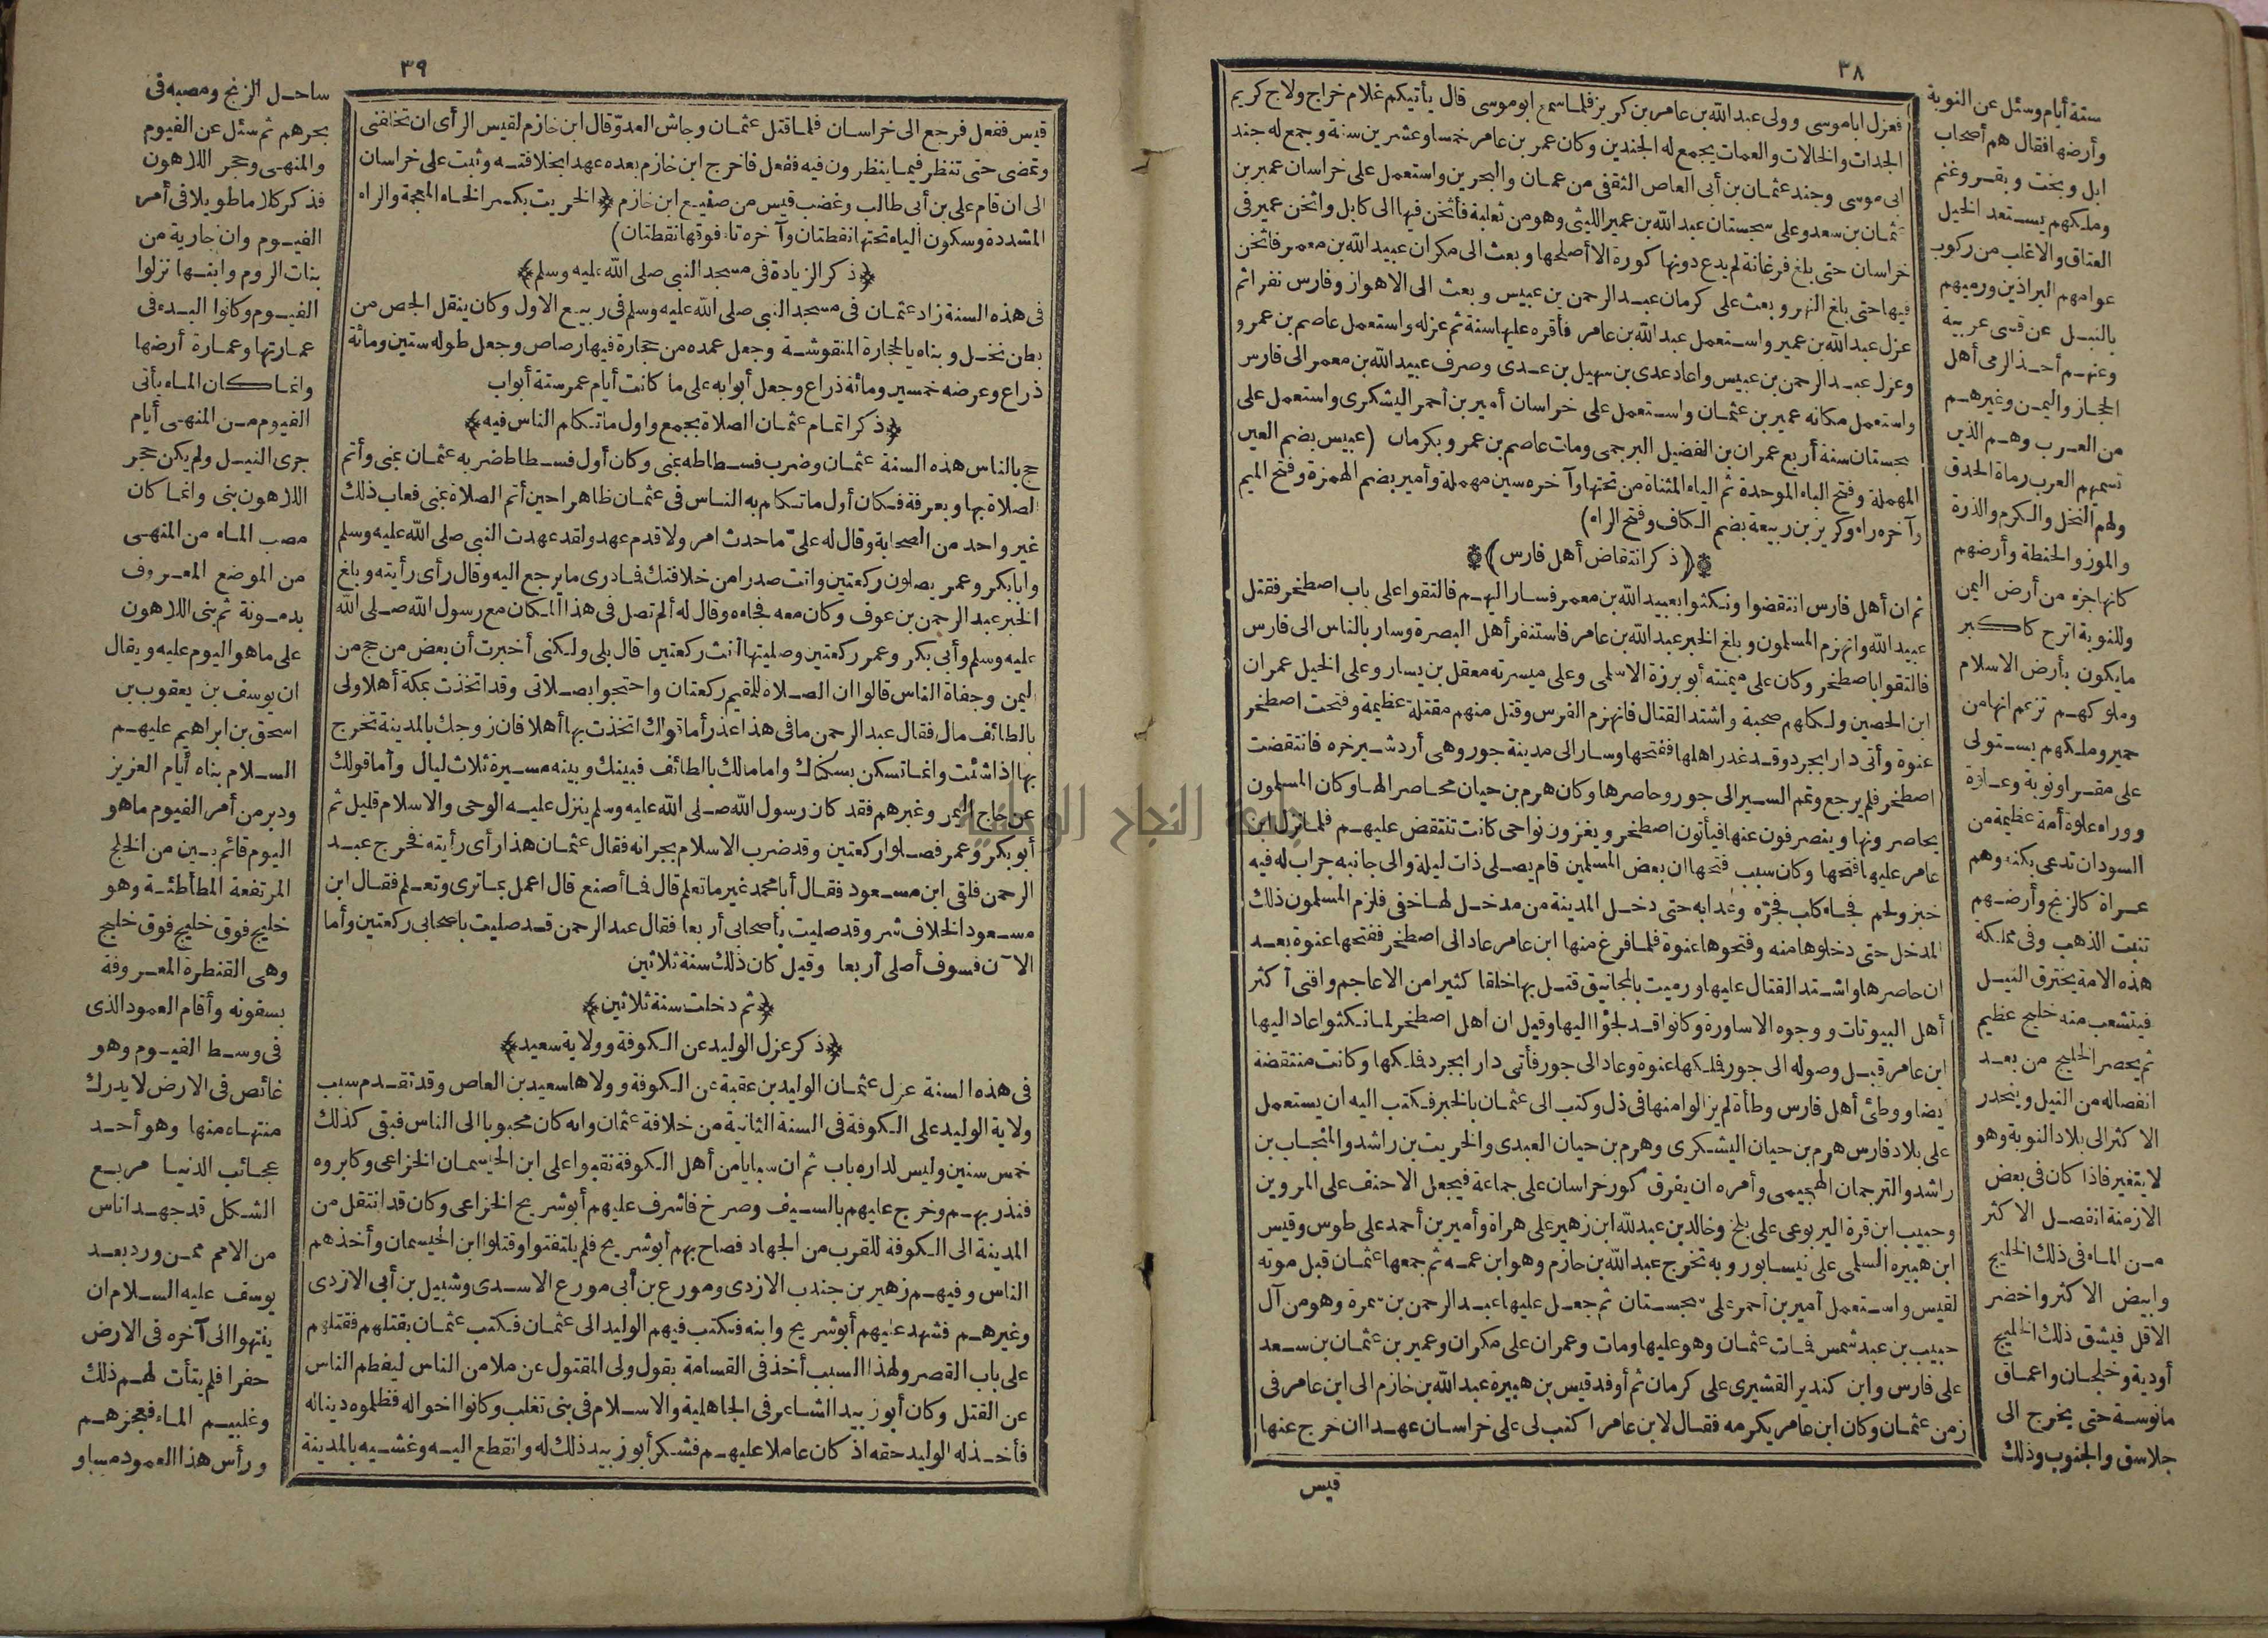 ٣٨
فعزل اباموسى وولى عبد الله بن عامر بن كريز فلما سمع ابو موسى قال يأتيكم غلام خراج ولاج كريم
الجدات والخالات والعمات يجمع له الجندين وكان عمر بن عامر خمسا وعشرين سنة وجمع له جند
ابى موسى وجند عثمان بن أبى العاص الثقفى من عمان والبحرين واستعمل على خراسان عمير بن
عثمان بن سعد وعلى سجستان عبد الله بن عمير الليثى وهو من ثعلبة فأثخن فيها الى كابل واثخن عمير فى
خراسان حتى بلغ فرغانة لم يدع دونها كورة الا أصلحها وبعث الى مكران عبيد الله بن معمر فاثخن
فيها حتى بلغ النهر وبعث على كرمان عبد الرحمن بن عبيس وبعث الى الاهواز وفارس نفرا ثم
عزل عبد الله بن عمير واستعمل عبد الله بن عامر فأقره عليها سنة ثم عزله واستعمل عاصم بن عمرو
وعزل عبد الرحمن بن عبيس واعاد عدى بن سهيل بن عدى وصرف عبيد الله بن معمر الى فارس
واستعمل مكانه عمير بن عثمان واستعمل على خراسان أمير بن أحمر اليشكرى واستعمل على
سجستان سنة أربع عمران بن الفضيل البرجمى ومات عاصم بن عمرو بكرمان (عبيس بضم العين
المهملة وفتح الباء الموحدة ثم الياء المثناة من تحتها وآخره سين مهملة وأمير بضم الهمزة وفتح الميم
وآخره راء وكريز بن ربيعة بضم الكاف وفتح الراء)
(ذكر انتقاض أهل فارس)
ثم ان أهل فارس انتقضوا ونكثوا بعبيد الله بن معمر فسار اليهم فالتقوا على باب اصطخر فقتل
عبيد الله وانهزم المسلمون وبلغ الخبر عبد الله بن عامر فاستنفر أهل البصرة وسار بالناس الى فارس
فالتقوا باصطخر وكان على ميمنته أبو برزة الاسلمى وعلى ميسرته معقل بن يسار وعلى الخيل عمران
ابن الحصين ولكلهم صحبة واشتد القتال فانهزم الفرس وقتل منهم مقتلة عظيمة وفتحت اصطخر
عنوة وأتى دار ابجرد وقد غدر اهلها ففتحها وسار الى مدينة جور وهى أردشير خره فانتقضت
اصطخر فلم يرجع وتمم السير الى جور وحاصرها وكان هرم بن حيان محاصرا لها وكان المسلمون
يحاصرونها وينصرفون عنها فيأتون اصطخر ويغزون نواحى كانت تنتقض عليهم فلما نزل ابن
عامر عليها فتحها وكان سبب فتحها ان بعض المسلمين قام يصلى ذات ليلة والى جانبه جراب له فيه
خبز ولحم فجاء كلب فجره وعدا به حتى دخل المدينة من مدخل لها خفى فلزم المسلمون ذلك
المدخل حتى دخلوها منه وفتحوها عنوة فلما فرغ منها ابن عامر عاد الى اصطخر ففتحها عنوة بعد
ان حاصرها واشتد القتال عليها ورميت بالمجانيق قتل بها خلقا كثيرا من الاعاجم وافنى أكثر
أهل البيوتات ووجوه الاساورة وكانوا قد لجؤا اليها وقيل ان أهل اصطخر لما نكثوا عاد اليها
ابن عامر قبل وصوله الى جور فملكها عنوة وعاد الى جور فأتى دار ابجرد فملكها وكانت منتقضة
ايضا ووطئ أهل فارس وطأة لم يزالوا منها فى ذل وكتب الى عثمان بالخبر فكتب اليه ان يستعمل
على بلاد فارس هرم بن حيان اليشكرى وهرم بن حيان العبدى والخريت بن راشد والمنجاب بن
راشد والترجمان الهجيمى وأمره ان يفرق كور خراسان على جماعة فيجعل الاحنف على المروين
وحبيب ابن قرة اليربوعى على بلخ وخالد بن عبد لله ابن زهير على هراة وأمير بن أحمد على طوس وقيس
ابن هبيرة السلمى على نيسابور وبه تخرج عبد الله بن خازم وهو ابن عمه ثم جمعها عثمان قبل موته
لقيس واستعمل أمير بن أحمر على سجستان ثم جعل عليها عبد الرحمن بن سمرة وهو من آل
حبيب بن عبد شمس فات عثمان وهو عليها ومات وعمران على مكران وعمير بن عثمان بن سعد
على فارس وابن كندير القشيرى على كرمان ثم أوفد قيس بن هبيرة عبد الله بن خازم الى ابن عامر فى
زمن عثمان وكان ابن عامر يكرمه فقال لابن عامر اكتب لى على خراسان عهدا ان خرج عنها
قيس
ستة أيام وسئل عن النوبة
وأرضها فقال هم أصحاب
ابل وبخت وبقر وغنم
وملكهم يستعد الخيل
العتاق والاغلب من ركوب
عوامهم البراذين ورميهم
بالنبل عن قسى عربية
وعنهم أخذ الرمى أهل
الحجاز واليمن وغيرهم
من العرب وهم الذين
تسميهم العرب رماة الحدق
ولهم النخل والكرم والذرة
والموز والحنطة وأرضهم
كانها جزء من أرض اليمن
وللنوبة اترج كاكبر
ما يكون بأرض الاسلام
وملوكهم تزعم انها من
حمير وملكهم يستولى
على مقرا ونوبة وعلوة
ووراء علوة أمة عظيمة من
السودان تدعى بكنه وهم
عراة كالزنج وأرضهم
تنبت الذهب وفى مملكة
هذه الامة يخترق النيل
فيتشعب منه خليج عظيم
ثم يخضر الخليج من بعد
انفصاله من النيل وينحدر
الاكثر الى بلاد النوبة وهو
لا يتغير فاذا كان فى بعض
الازمنة انفصل الاكثر
من الماء فى ذلك الخليج
وابيض الاكثر واخضر
الاقل فيشق ذلك الخليج
أودية وخلجان واعماق
مانوسة حتى يخرج الى
جلاسق والجنوب وذلك
٣٩
قيس ففعل فرجع الى خراسان فلما قتل عثمان وجاش العدو قال ابن خازم لقيس الرأى ان تخلفنى
وتمضى حتى تنظر فيما ينظرون فيه ففعل فاخرج ابن خازم بعده عهدا بخلافته وثبت على خراسان
الى ان قام على بن أبى طالب وغضب قيس من صنيع ابن خازم (الخريت بكسر الخاء المعجمة والراء
المشددة وسكون الياء تحتها نقطتان وآخره تاء فوقها نقطتان)
(ذكر الزيادة فى مسجد النبى صلى الله عليه وسلم)
فى هذه السنة زاد عثمان فى مسجد النبى صلى الله عليه وسلم فى ربيع الاول وكان ينقل الجص من
بطن نخل وبناه بالحجارة المنقوشة وجعل عمده من حجارة فيها رصاص وجعل طوله ستين ومائة
ذراع وعرضه خمسين ومائة ذراع وجعل أبوابه على ما كانت أيام عمر ستة أبواب
(ذكر اتمام عثمان الصلاة بجمع واول ما تكلم الناس فيه)
حج بالناس هذه السنة عثمان وضرب فسطاطه بمنى وكان أول فسطاط ضربه عثمان بمنى وأتم
الصلاة بها وبعرفة فكان أول ما تكلم به الناس فى عثمان ظاهرا حين أتم الصلاة بمنى فعاب ذلك
غير واحد من الصحابة وقال له على ما حدث امر ولا قدم عهد ولقد عهدت النبى صلى الله عليه وسلم
وابا بكر وعمر يصلون ركعتين وانت صدرا من خلافتك فما درى ما يرجع اليه وقال رأى رأيته وبلغ
الخبر عبد الرحمن بن عوف وكان معه فجاءه وقال له ألم تصل فى هذا المكان مع رسول الله صلى الله
عليه وسلم وأبى بكر وعمر ركعتين وصليتها أنت ركعتين قال بلى ولكنى أخبرت أن بعض من حج من
اليمن وجفاة الناس قالوا ان الصلاة للمقيم ركعتان واحتجوا بصلاتى وقد اتخذت بمكة أهلا ولى
بالطائف مال فقال عبد الرحمن ما فى هذا عذر أما قولك اتخذت بها أهلا فان زوجك بالمدينة تخرج
بها اذا شئت وانما تسكن بسكناك واما مالك بالطائف فبينك وبينه مسيرة ثلاث ليال وأما قولك
عن حاج اليمن وغيرهم فقد كان رسول الله صلى الله عليه وسلم ينزل عليه الوحى والاسلام قليل ثم
أبو بكر وعمر فصلوا ركعتين وقد ضرب الاسلام بجرانه فقال عثمان هذا رأى رأيته فخرج عبد
الرحمن فلقى ابن مسعود فقال أبا محمد غير ما تعلم قال فما أصنع قال اعمل بما ترى وتعلم فقال ابن
مسعود الخلاف شر وقد صليت بأصحابى أربعا فقال عبد الرحمن قد صليت باصحابى ركعتين وأما
الآن فسوف أصلى أربعا وقيل كان ذلك سنة ثلاثين
(ثم دخلت سنة ثلاثين)
(ذكر عزل الوليد عن الكوفة وولاية سعيد)
فى هذه السنة عزل عثمان الوليد بن عقبة عن الكوفة وولاها سعيد بن العاص وقد تقدم سبب
ولاية الوليد على الكوفة فى السنة الثانية من خلافة عثمان وانه كان محبوبا الى الناس فبقى كذلك
خمس سنين وليس لداره باب ثم ان شبابا من أهل الكوفة نقبوا على ابن الحيسمان الخزاعى وكابروه
فنذر بهم وخرج عليهم بالسيف وصرخ فاشرف عليهم أبو شريح الخزاعى وكان قد انتقل من
المدينة الى الكوفة للقرب من الجهاد فصاح بهم أبو شريح فلم يلتفتوا وقتلوا ابن الحيسمان وأخذهم
الناس وفيهم زهير بن جندب الازدى ومورع بن أبى مورع الاسدى وشبيل بن أبى الازدى
وغيرهم فشهد عليهم أبو شريح وابنه فكتب فيهم الوليد الى عثمان فكتب عثمان بقتلهم فقتلهم
على باب القصر ولهذا السبب أخذ فى القسامة بقول ولى المقتول عن ملا من الناس ليفطم الناس
عن القتل وكان أبو زبيد الشاعر فى الجاهلية والاسلام فى بنى تغلب وكانوا اخواله فظلموه دينا له
فأخذ له الوليد حقه اذ كان عاملا عليهم فشكر أبو زبيد ذلك له وانقطع اليه وغشيه بالمدينة
ساحل الزنج ومصبه فى
بحرهم ثم سئل عن الفيوم
والمنهى وحجر اللاهون
فذكر كلاما طويلا فى أمر
الفيوم وان جارية من
بنات الروم وابنها نزلوا
الفيوم وكانوا البدء فى
عمارتها وعمارة أرضها
وانما كان الماء يأتى
الفيوم من المنهى أيام
جرى النيل ولم يكن حجر
اللاهون بنى وانما كان
مصب الماء من المنهى
من الموضع المعروف
بدمونة ثم بنى اللاهون
على ما هو اليوم عليه ويقال
ان يوسف بن يعقوب بن
اسحق بن ابراهيم عليهم
السلام بناه أيام العزيز
ودبر من أمر الفيوم ما هو
اليوم قائم بين من الخلج
المرتفعة المطأطئة وهو
خليج فوق خليج فوق خليج
وهى القنطرة المعروفة
بسفونه وأقام العمود الذى
فى وسط الفيوم وهو
غائص فى الارض لا يدرك
منتهاه منها وهو أحد
عجائب الدنيا مربع
الشكل قد جهد اناس
من الامم ممن ورد بعد
يوسف عليه السلام ان
ينتهوا الى آخره فى الارض
حفرا فلم يتأت لهم ذلك
وغلبهم الماء فعجزهم
ورأس هذا العمود مساو